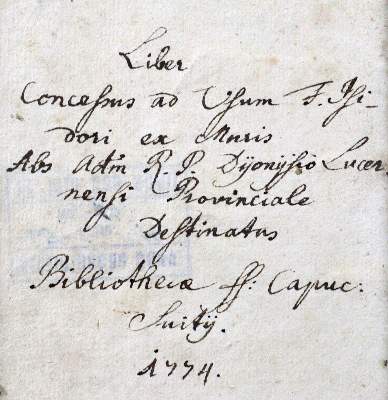 Liber
Concessus ad Usum F. Isi-
dori ex Muris
Abs Adm R. P. Dijonÿsio Lucer-
nensi Provinciale
Destinatus
Bibliothecæ ff: Capuc:
Suitÿ.
1774.